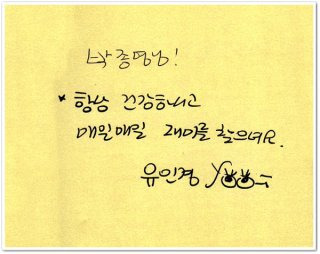 박종명님!
* 항상 건강하시고
매일매일 재미를 찾으셔요.
유인경